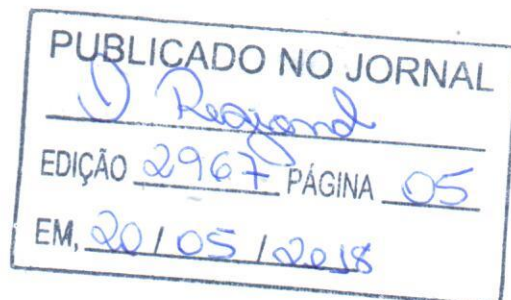 PUBLICADO NO JORNAL
O Regional
EDIÇÃO 2967 PÁGINA 05
EM, 20 / 05 / 2018